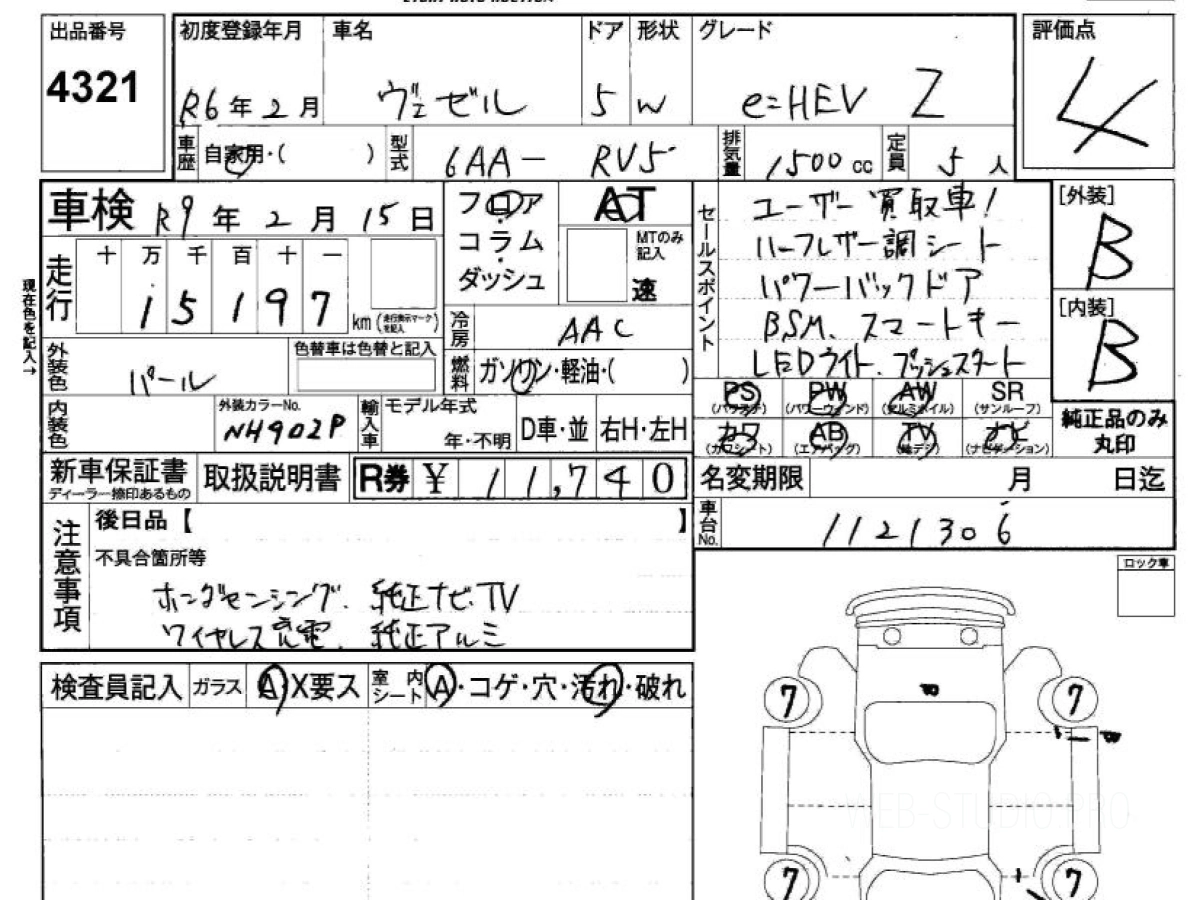 出品番号
4321
初度登録年月
R6年2月
車名
ヴェゼル
ドア
5
形状
W
グレード
e:HEV Z
評価点
4
車歴
自家用・( )
型式
6AA- RV5
排気量
1500cc
定員
5人
車検 R9年2月15日
フロア
コラム
ダッシュ
AT
MTのみ
記入
速
セールスポイント
ユーザー買取車!
ハーフレザー調シート
パワーバックドア
BSM. スマートキー
LEDライト. プッシュスタート
[外装]
B
[内装]
B
現在色を記入→
走行
十万千百十一
15197
km(走行表示マークを記入)
冷房
AAC
外装色
パール
色替車は色替と記入
燃料
ガソリン・軽油・( )
内装色
外装カラーNo.
NH902P
輸入車
モデル年式
年・不明
D車・並
右H・左H
PS
(パワステ)
PW
(パワーウィンド)
AW
(アルミホイル)
SR
(サンルーフ)
カワ
(カワシート)
AB
(エアバッグ)
TV
(地デジ)
ナビ
(ナビゲーション)
純正品のみ
丸印
新車保証書
ディーラー捺印あるもの
取扱説明書
R券 ¥11,740
名変期限
月 日迄
車台No.
1121306
注意事項
後日品【 】
不具合箇所等
ホンダセンシング. 純正ナビ.TV
ワイヤレス充電. 純正アルミ
ロック車
検査員記入
ガラス
A X要ス
室内シート
A・コゲ・穴・汚れ・破れ
7
7
7
7
WEB-STUDIO.PRO